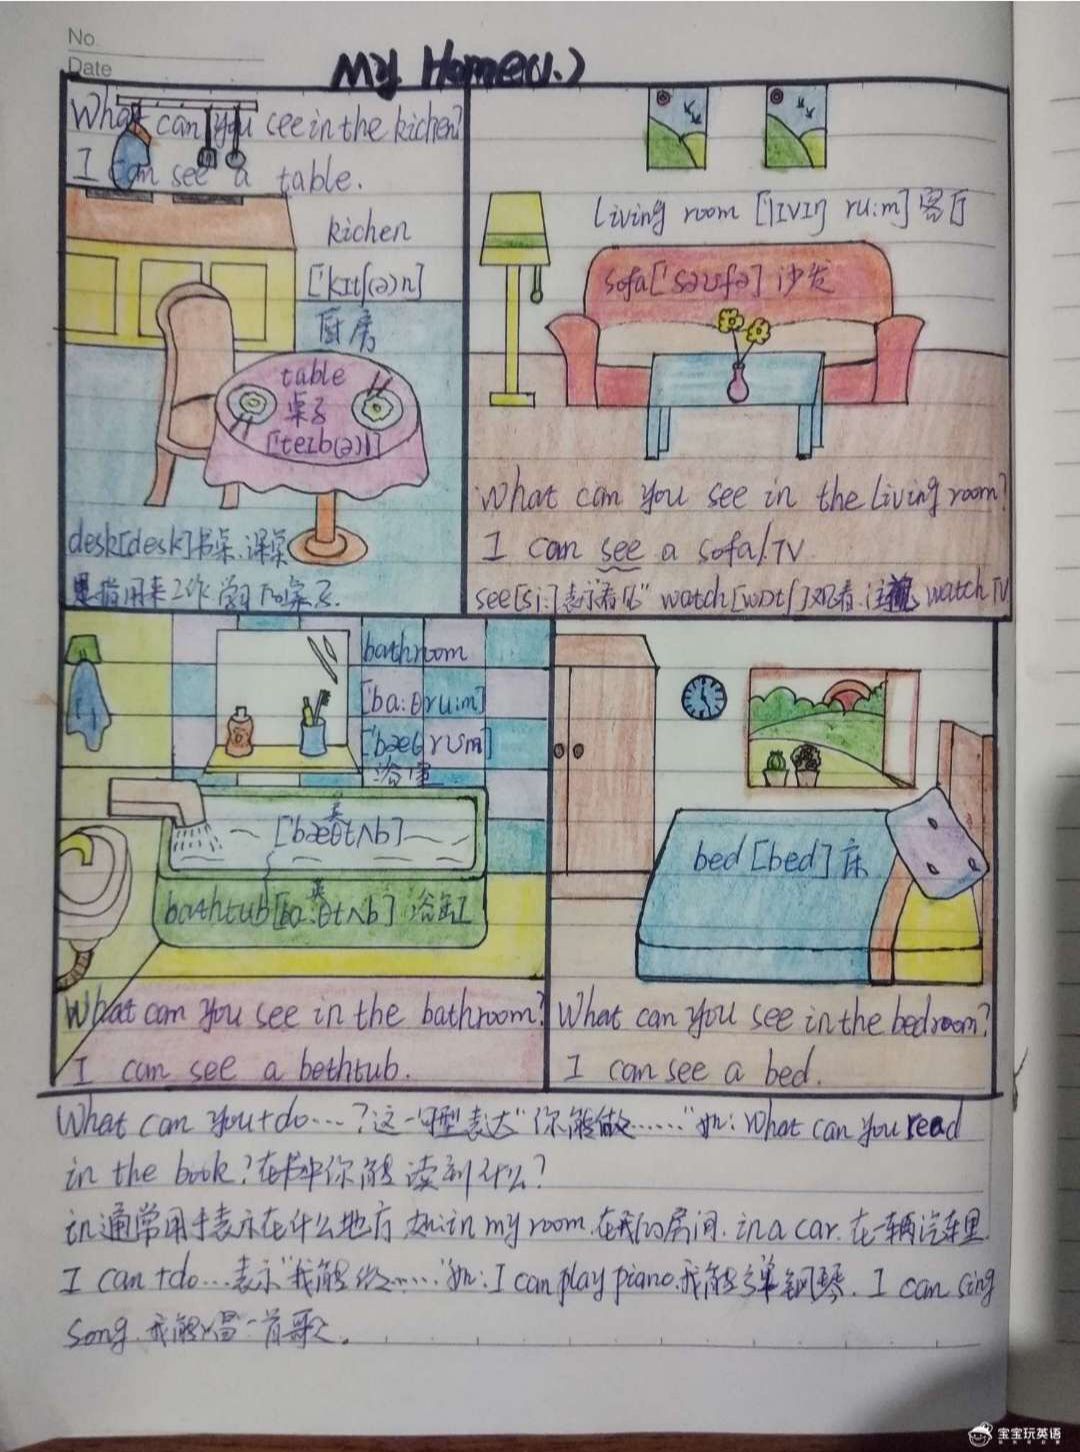 No
Date
My Home(1.)
What can you see in the kichen?
I can see a table.
kichen
['kɪtʃ(ə)n]
厨房
table
桌子
['teɪb(ə)l]
desk[desk]书桌.课桌
是指用来工作.学习的桌子.
living room ['lIVIŋ ru:m]客厅
sofa['səʊfə]沙发
What can you see in the living room?
I can see a sofa/TV
see[si:]表示看见" watch[wɒtʃ]观看. watch TV
bathroom
['ba:θru:m]
['bæθrʊm]
浴室
美
['bæθtʌb]
英
bathtub[ba:θtʌb] 浴缸
What can you see in the bathroom?
I can see a bathtub.
bed [bed] 床
What can you see in the bedroom?
I can see a bed.
What can you+do…?这一句型表达"你能做……"如: What can you read
in the book?在书中你能读到什么?
in通常用于表示在什么地方 如:in my room.在我的房间. in a car.在一辆汽车里
I can +do…表示"我能做……"如:I can play piano.我能弹钢琴. I can sing
song.我能唱一首歌。
宝宝玩英语